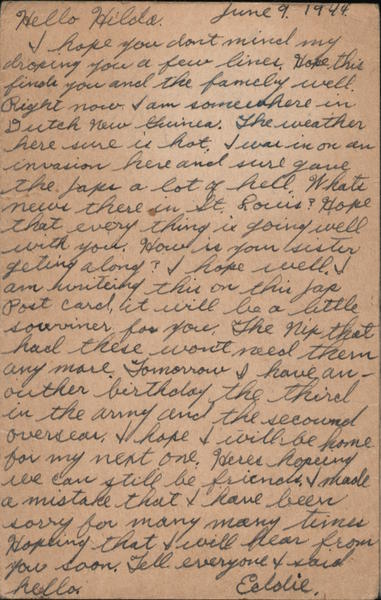 Hello Hilda. June 9. 1944.
I hope you dont mind my
droping you a few lines. Hope this
finds you and the famely well.
Right now I am somewhere in
Dutch New Guinea. The weather
here sure is hot. I was in on an
invasion here and sure gave
the Japs a lot of hell. Whats
news there in St. Louis? Hope
that every thing is going well
with you. How is your sister
geting along? I hope well. I
am writeing this on this Jap
Post card, it will be a little
souviner for you. The Nip that
had these wont need them
any more. Tomorrow I have an-
outher birthday the third
in the army and the secound
oversear. I hope I will be home
for my next one. Heres hopeing
we can still be friends. I made
a mistake that I have been
sorry for many many times
Hopeing that I will hear from
you soon. Tell everyone I said
hello. Eddie.